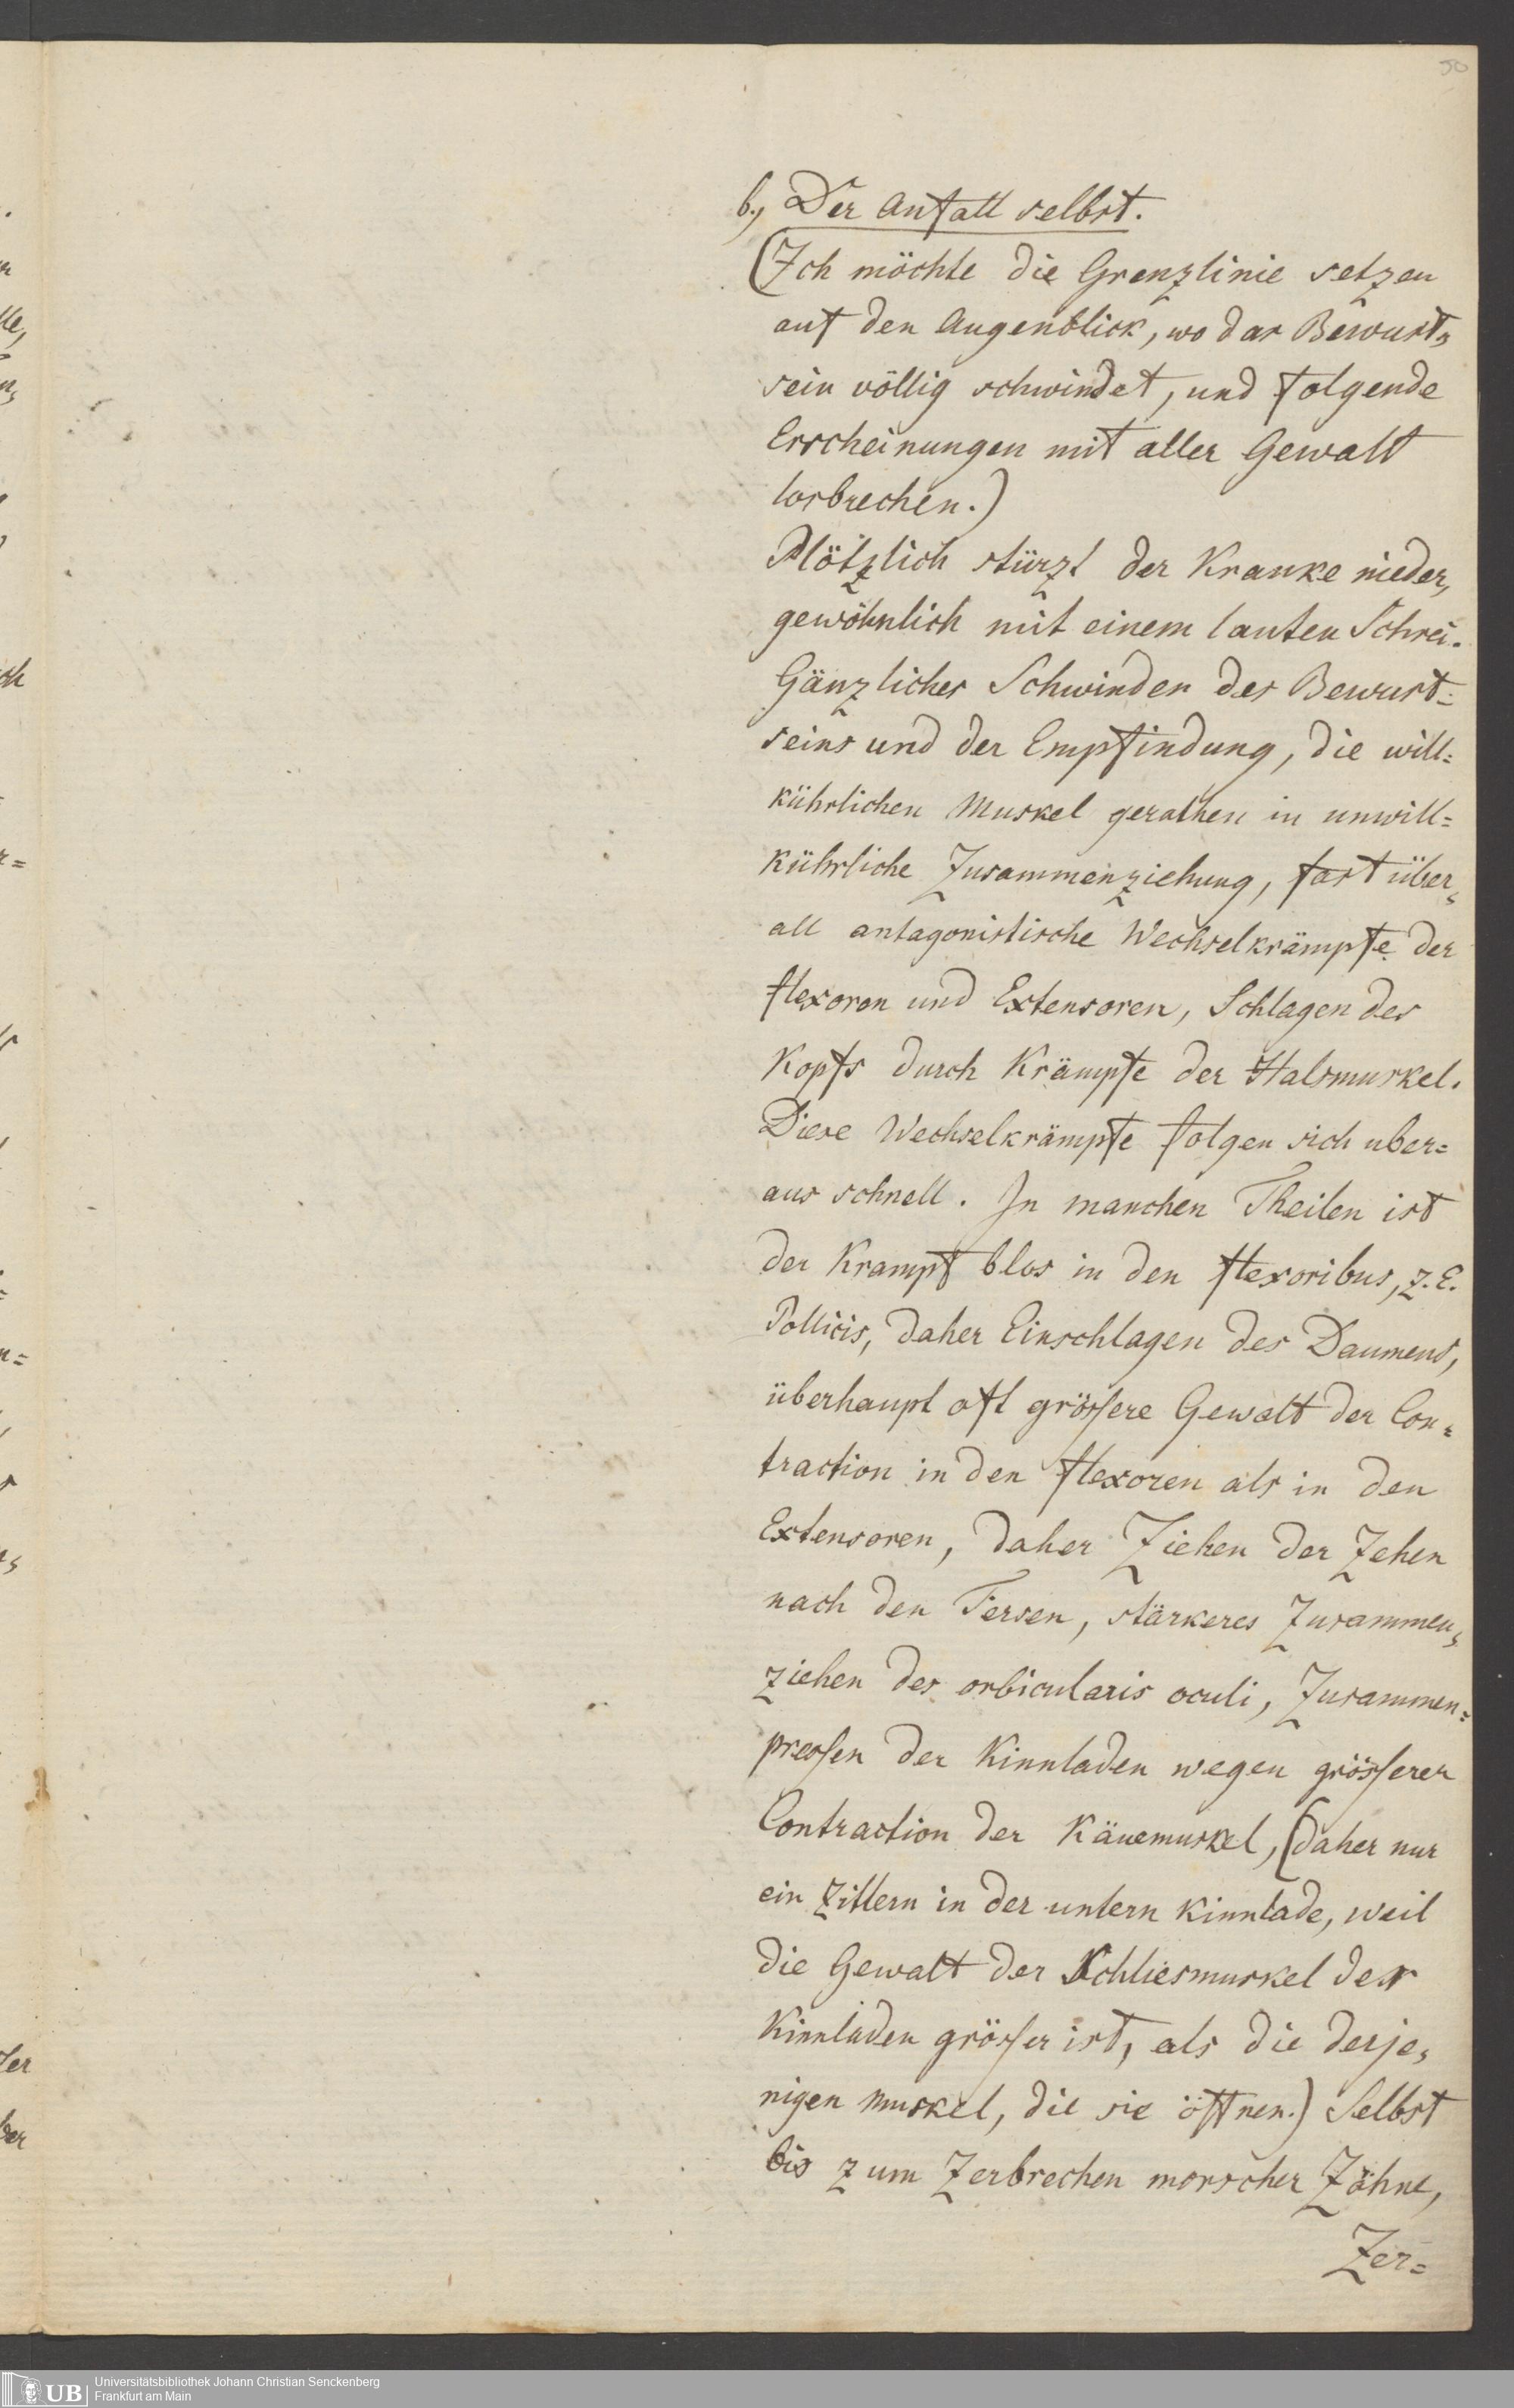 50
b.) Der Anfall selbst.
(Ich möchte die Grenzlinie setzen
auf den Augenblick, wo das Bewust-
sein völlig schwindet, und folgende
Erscheinungen mit aller Gewalt
losbrechen.)
Plötzlich stürzt der Kranke nieder,
gewöhnlich mit einem lauten Schrei.
Gänzliches Schwinden des Bewust=
seins und der Empfindung, die will=
kührlichen Muskel gerathen in unwill=
kührliche Zusammenziehung, fast über-
all antagonistische Wechselkrämpfe der
flexoren und Extensoren, Schlagen des
Kopfs durch Krämpfe der Halsmuskel.
Diese Wechselkrämpfe folgen sich uber=
aus schnell. In manchen Theilen ist
der Krampf blos in den flexoribus, z. E.
Pollicis, daher Einschlagen des Daumens,
überhaupt oft grössere Gewalt der Con-
traction in den flexoren als in den
Extensoren, daher Ziehen der Zehen
nach den Fersen, stärkeres Zusammen-
ziehen des orbicularis oculi, Zusammen=
pressen der Kinnladen wegen grösserer
Contraction der Käuemuskel, (daher nur
ein Zittern in der untern Kinnlade, weil
die Gewalt der Schliesmuskel der
Kinnladen grösser ist, als die derje-
nigen Muskel, die sie öffnen.) Selbst
bis zum Zerbrechen morscher Zähne,
Zer=
UB
Universitätsbibliothek Johann Christian Senckenberg
Frankfurt am Main